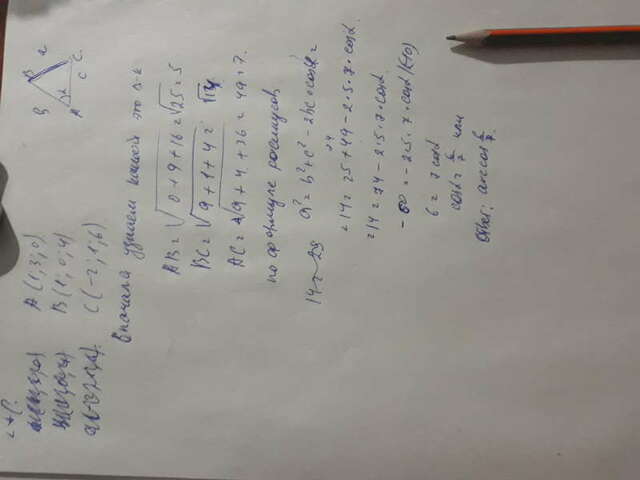 A (1; 3; 0)
B (1; 0; 4)
C (-2; 1; 6)
B
a
A
c
C
Вначала узнаем какой это
AB = √0+9+16 = √25 = 5
BC = √9+1+4 = √14
AC = √9+4+36 = 49 = 7.
по формуле косинусов
14 = 25
a² = b² + c² - 2bc · cosα =
= 14 = 25 + 49 - 2·5·7·cosα
= 14 = 74 - 2·5·7·cosα
- 60 = - 2·5·7·cosα /(-10)
6 = 7 cosα
cosα = 6/7 или
Ответ: arccos 6/7.